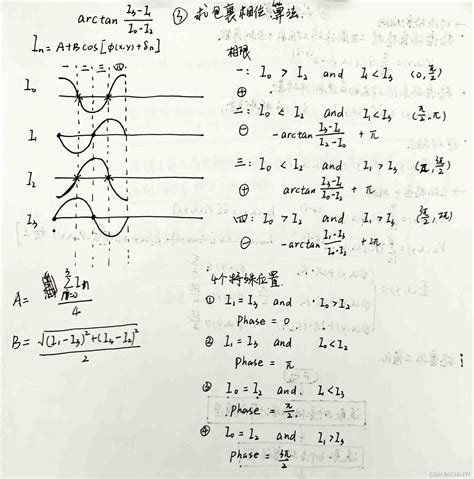 arctan (I₃-I₁)/(I₀-I₂)
③ 求包裹相位算法
Iₙ = A+Bcos[φ(x,y)+δₙ]
一 二 三 四
I₀
I₁
I₂
I₃
A = Σ(n=0→3) Iₙ / 4
B = √((I₁-I₃)²+(I₀-I₂)²) / 2
相限
一: I₀ > I₂ and I₁ < I₃ (0, π/2)
⊕
二: I₀ < I₂ and I₁ < I₃ (π/2, π)
⊖ -arctan (I₃-I₁)/(I₂-I₀) + π
三: I₀ < I₂ and I₁ > I₃ (π, 3π/2)
⊕ arctan (I₃-I₁)/(I₀-I₂) + π
四: I₀ > I₂ and I₁ > I₃ (3π/2, 2π)
⊖ -arctan (I₁-I₃)/(I₀-I₂) + 2π
4个特殊位置
① I₁ = I₃ and I₀ > I₂
phase = 0
② I₁ = I₃ and I₀ < I₂
phase = π
③ I₀ = I₂ and I₁ < I₃
phase = π/2
④ I₀ = I₂ and I₁ > I₃
phase = 3π/2